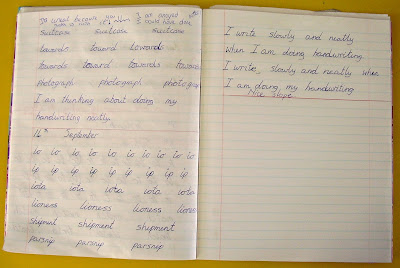 suitcase suitcase suitcase
towards toward towards
towards toward towards towards
photograph photograph photogra
I am thinking about doing my
handwriting neatly.
16th September
io io io io io io io io
ip ip ip ip ip ip ip ip
iota iota iota iota iota
lioness lioness lioness lione
shipment shipment shipment
parsnip parsnip parsnip
I write slowly and neatly
when I am doing handwriting
I write slowly and neatly when
I am doing my handwriting
Nice slope